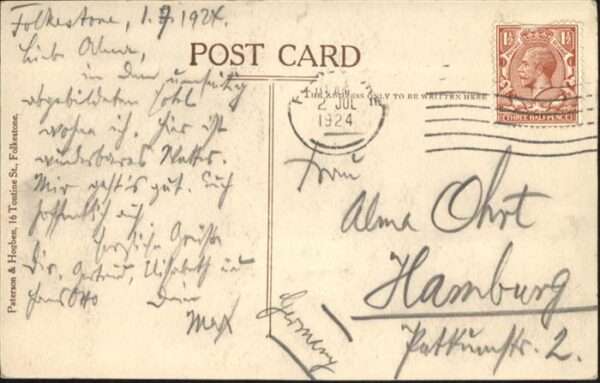 Folkestone, 1.7.1924.
Liebe Alma,
in dem umseitig
abgebildeten Hotel
wohne ich. Hier ist
wunderbares Wetter.
Mir geht's gut. Euch
hoffentlich auch
Herzliche Grüsse
Dir, Gertrud, Elisabeth und
Hans Otto Dein
Max
POST CARD
THE ADDRESS ONLY TO BE WRITTEN HERE
2 JUL
1924
1½ 1½
THREE HALF PENCE
Frau
Alma Ohrt
Hamburg
2.
Germany
Paterson & Hogben, 16 Tontine St., Folkestone.